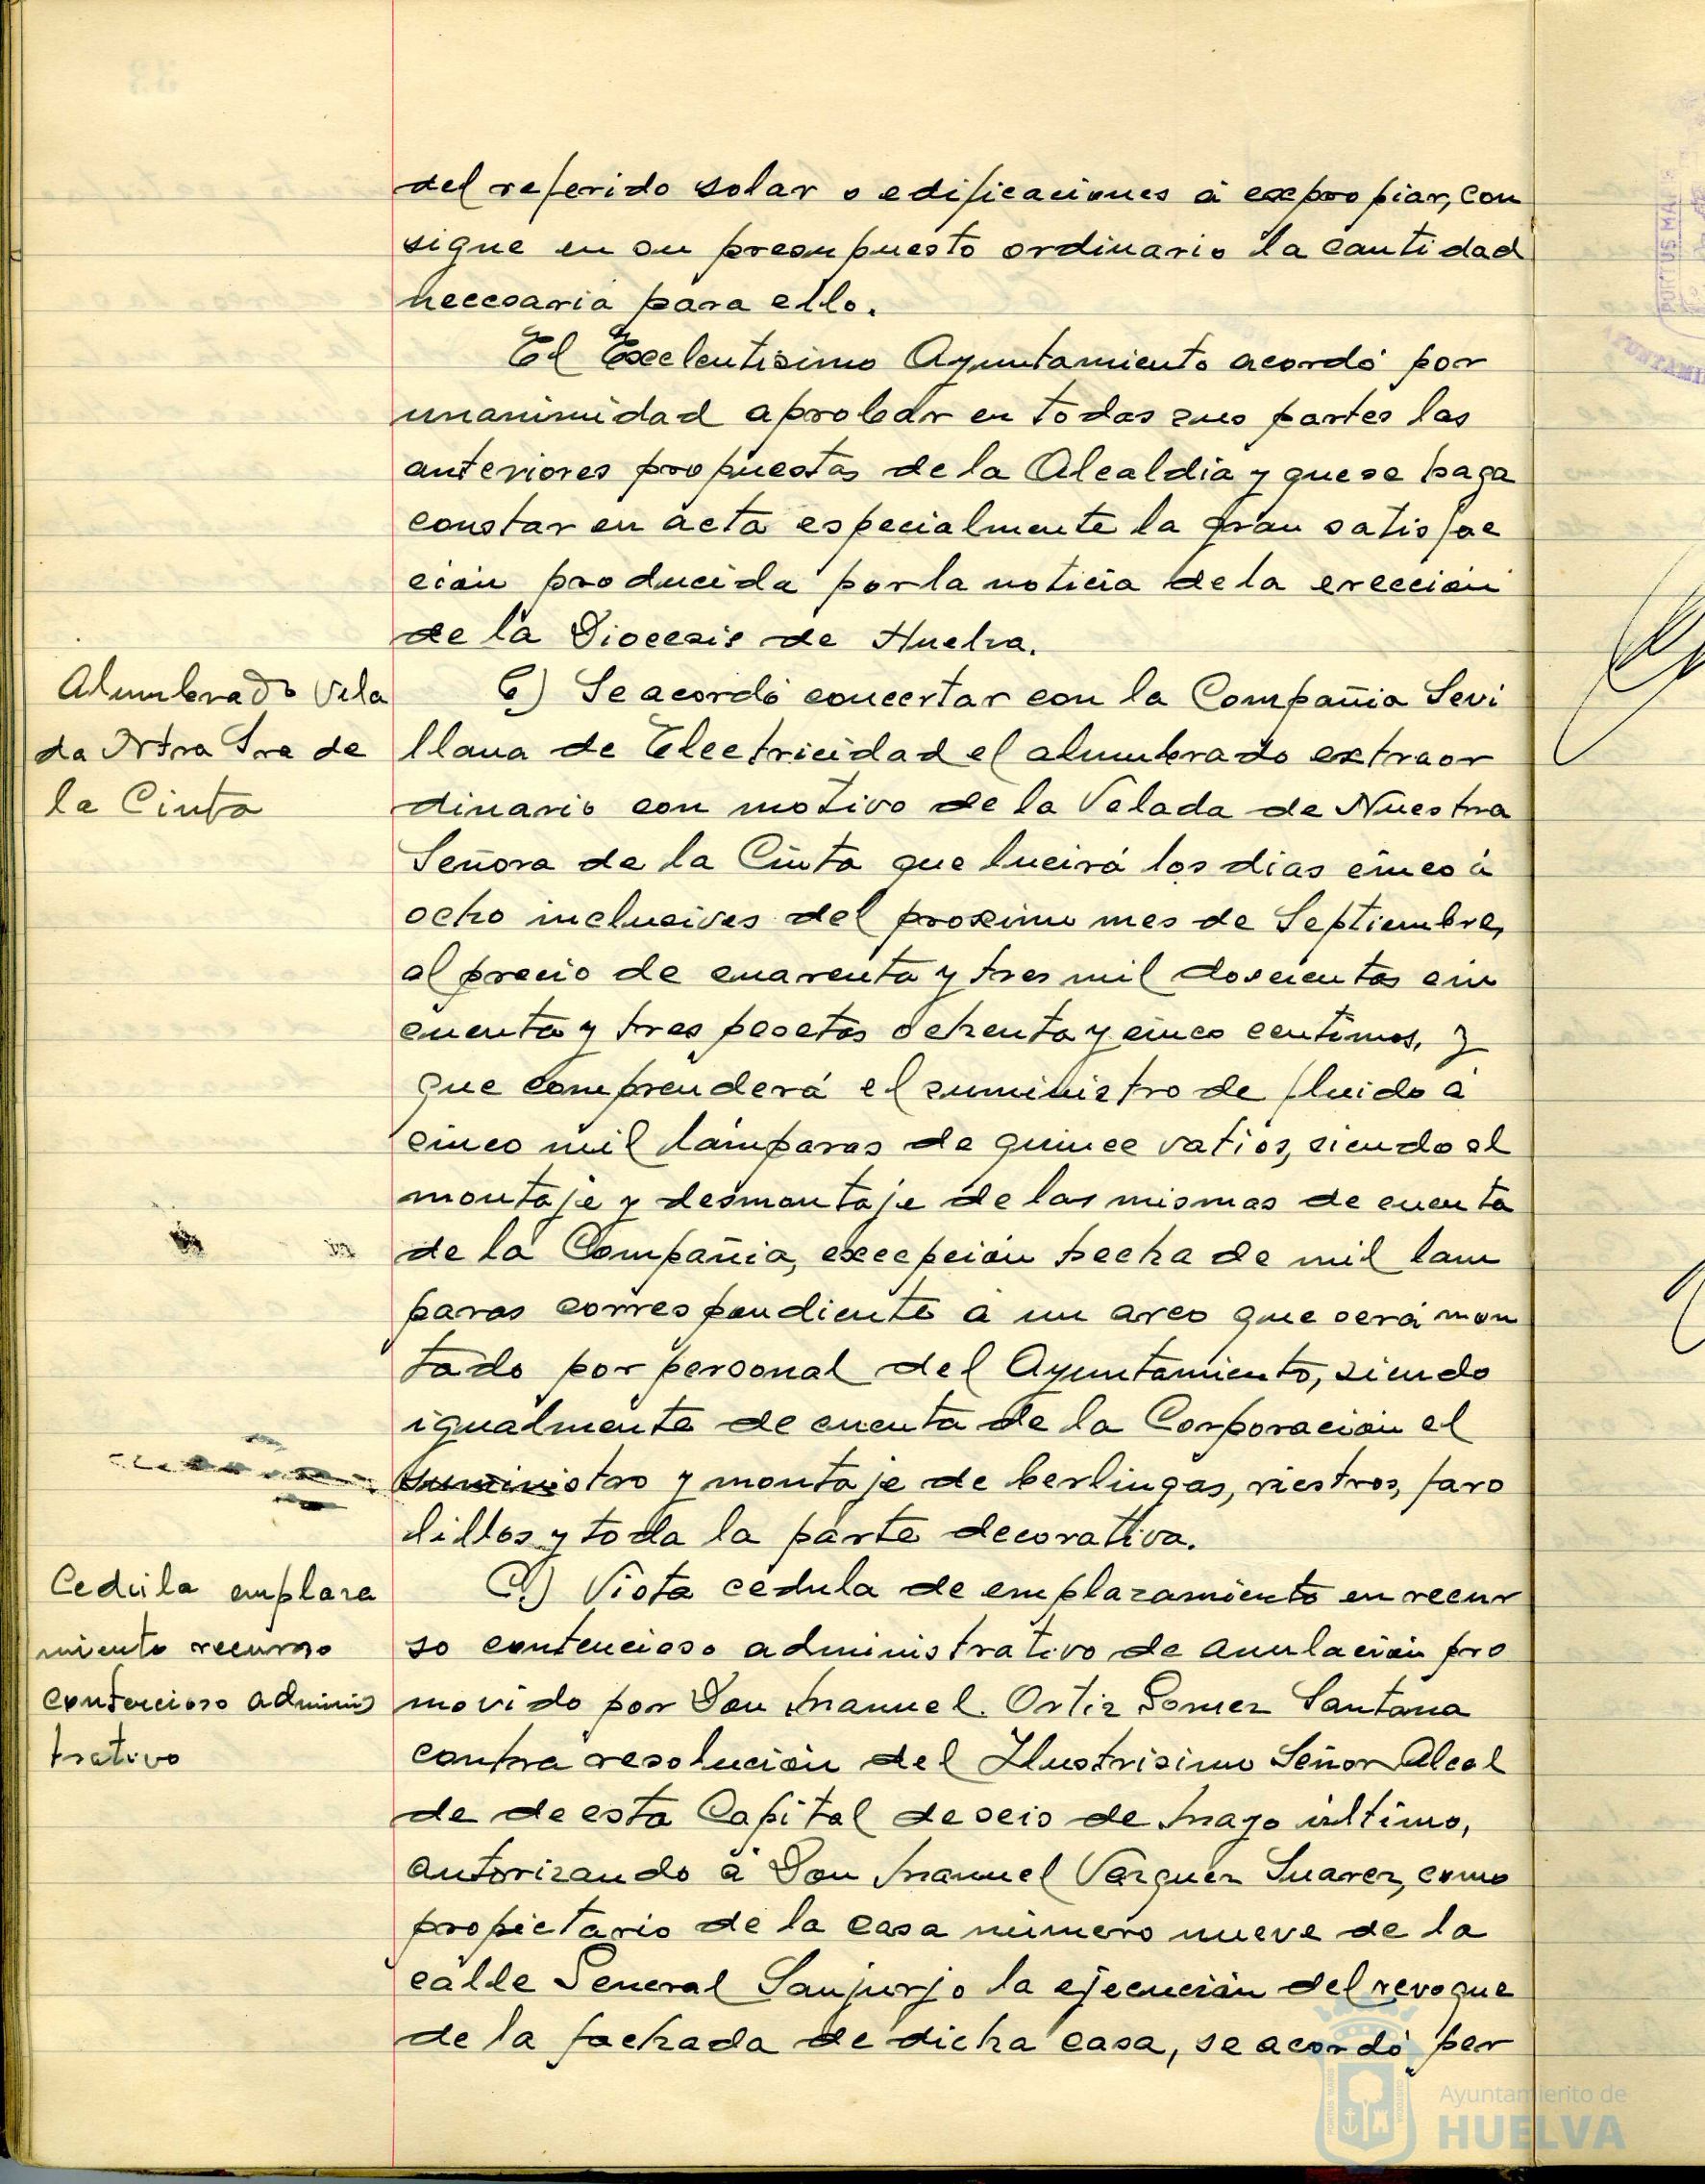 del referido solar o edificaciones á expropiar, con
signe en su presupuesto ordinario la cantidad
necesaria para ello.
El Excelentisimo Ayuntamiento acordó por
unanimidad aprobar en todas sus partes las
anteriores propuestas de la Alcaldia y que se haga
constar en acta especialmente la gran satisfac
ción producida por la noticia de la erección
de la Diocesis de Huelva.
Alumbrado Vela
da Ntra Sra de
la Cinta
6) Se acordó concertar con la Compañia Sevi
llana de Electricidad el alumbrado extraor
dinario con motivo de la Velada de Nuestra
Señora de la Cinta que lucirá los dias cinco á
ocho inclusives del proximo mes de Septiembre,
al precio de cuarenta y tres mil doscientas cin
cuenta y tres pesetas ochenta y cinco centimos, y
que comprenderá el suministro de fluido á
cinco mil lámparas de quince vatios, siendo el
montaje y desmontaje de las mismas de cuenta
de la Compañia, excepción hecha de mil lam
paras correspondiente a un arco que será mon
tado por personal del Ayuntamiento, siendo
igualmente de cuenta de la Corporación el
suministro y montaje de berlingas, riestros, faro
lillos y toda la parte decorativa.
Cedúla emplaza
miento recurso
contencioso adminis
trativo
C.) Vista cédula de emplazamiento en recur
so contencioso administrativo de anulación pro
movido por Don Manuel Ortiz Gomez Santana
contra resolución del Ilustrisimo Señor Alcal
de de esta Capital de seis de Mayo último,
autorizando á Don Manuel Vazquez Suarez, como
propietario de la casa número nueve de la
calle General Sanjurjo la ejecución del revoque
de la fachada de dicha casa, se acordó per
Ayuntamiento de
HUELVA